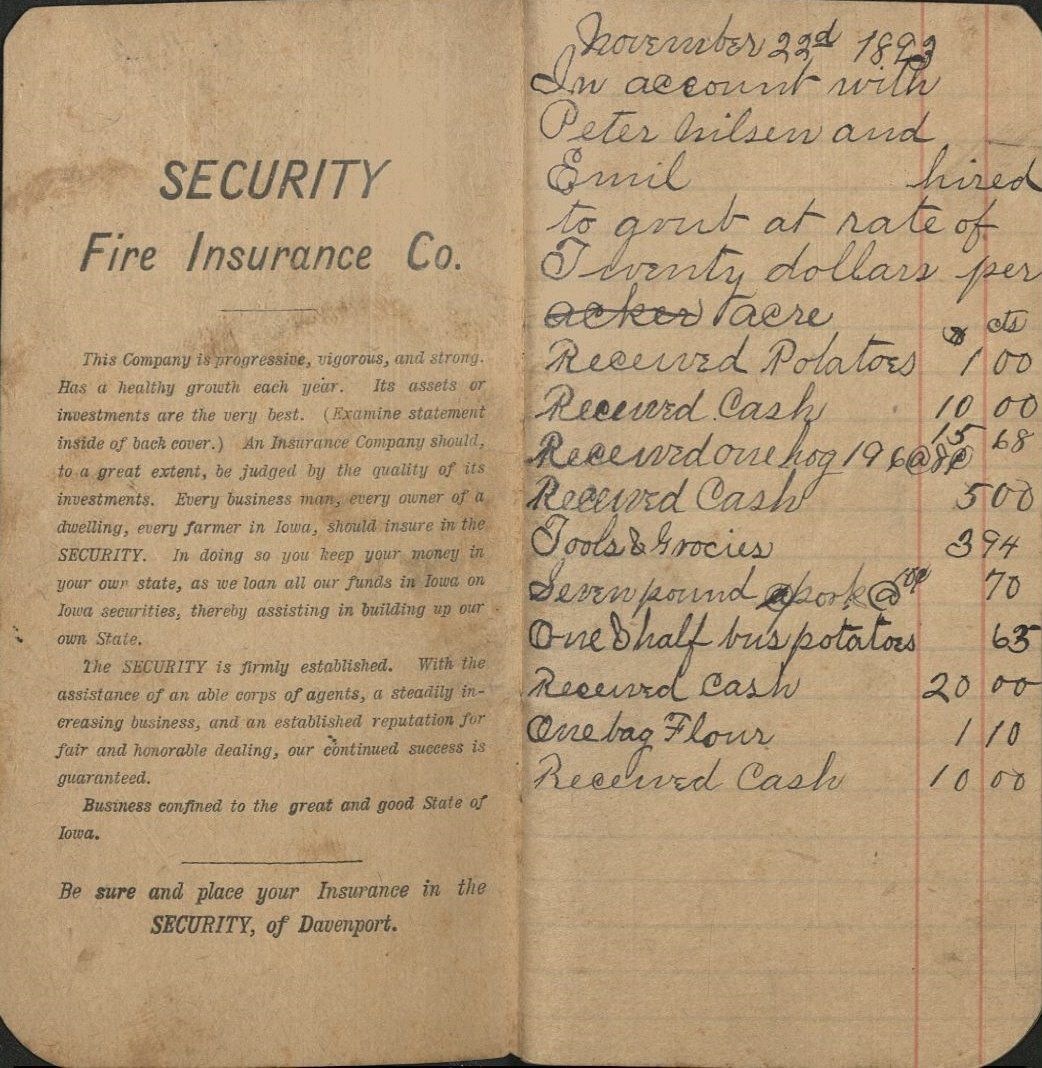 SECURITY
Fire Insurance Co.
This Company is progressive, vigorous, and strong.
Has a healthy growth each year. Its assets or
investments are the very best. (Examine statement
inside of back cover.) An Insurance Company should,
to a great extent, be judged by the quality of its
investments. Every business man, every owner of a
dwelling, every farmer in Iowa, should insure in the
SECURITY. In doing so you keep your money in
your own state, as we loan all our funds in Iowa on
Iowa securities, thereby assisting in building up our
own State.
The SECURITY is firmly established. With the
assistance of an able corps of agents, a steadily in-
creasing business, and an established reputation for
fair and honorable dealing, our continued success is
guaranteed.
Business confined to the great and good State of
Iowa.
Be sure and place your Insurance in the
SECURITY, of Davenport.
November 22d 1893
In account with
Peter Nilsen and
Emil hired
to grub at rate of
Twenty dollars per
acker acre
$ cts
Received Potatoes 1 00
Received Cash 10 00
Received one hog 196@8¢ 15 68
Received Cash 5 00
Tools & Grocies 3 94
Seven pound pork @ 10¢ 70
One & half bus potatoes 63
Received Cash 20 00
One bag Flour 1 10
Received Cash 10 00